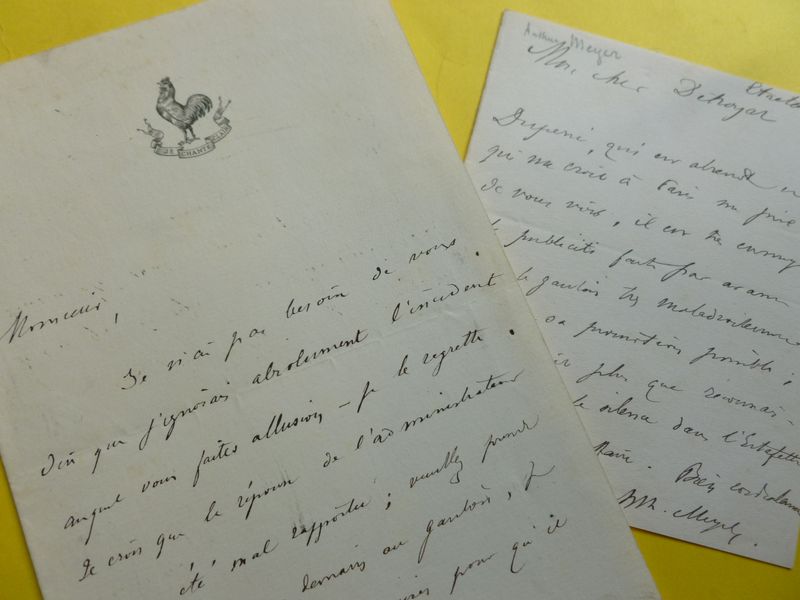 JE CHANTE CLAIR
Monsieur,
Je n'ai pas besoin de vous
dire que j'ignorais absolument l'incident
auquel vous faites allusion – je le regrette.
Je crois que la réponse de l'administrateur
a été mal rapportée ; veuillez prendre
demain au gaulois, je
pour qu'il
Arthur Meyer
Mon cher Détroyat
qui me croit à Paris me prie
de vous voir, il est très ennuyé
publicité faite par
le gaulois très maladroitement
sa promotion possible ;
plus que
le silence dans l'Estafette
Bien cordialement
Meyer